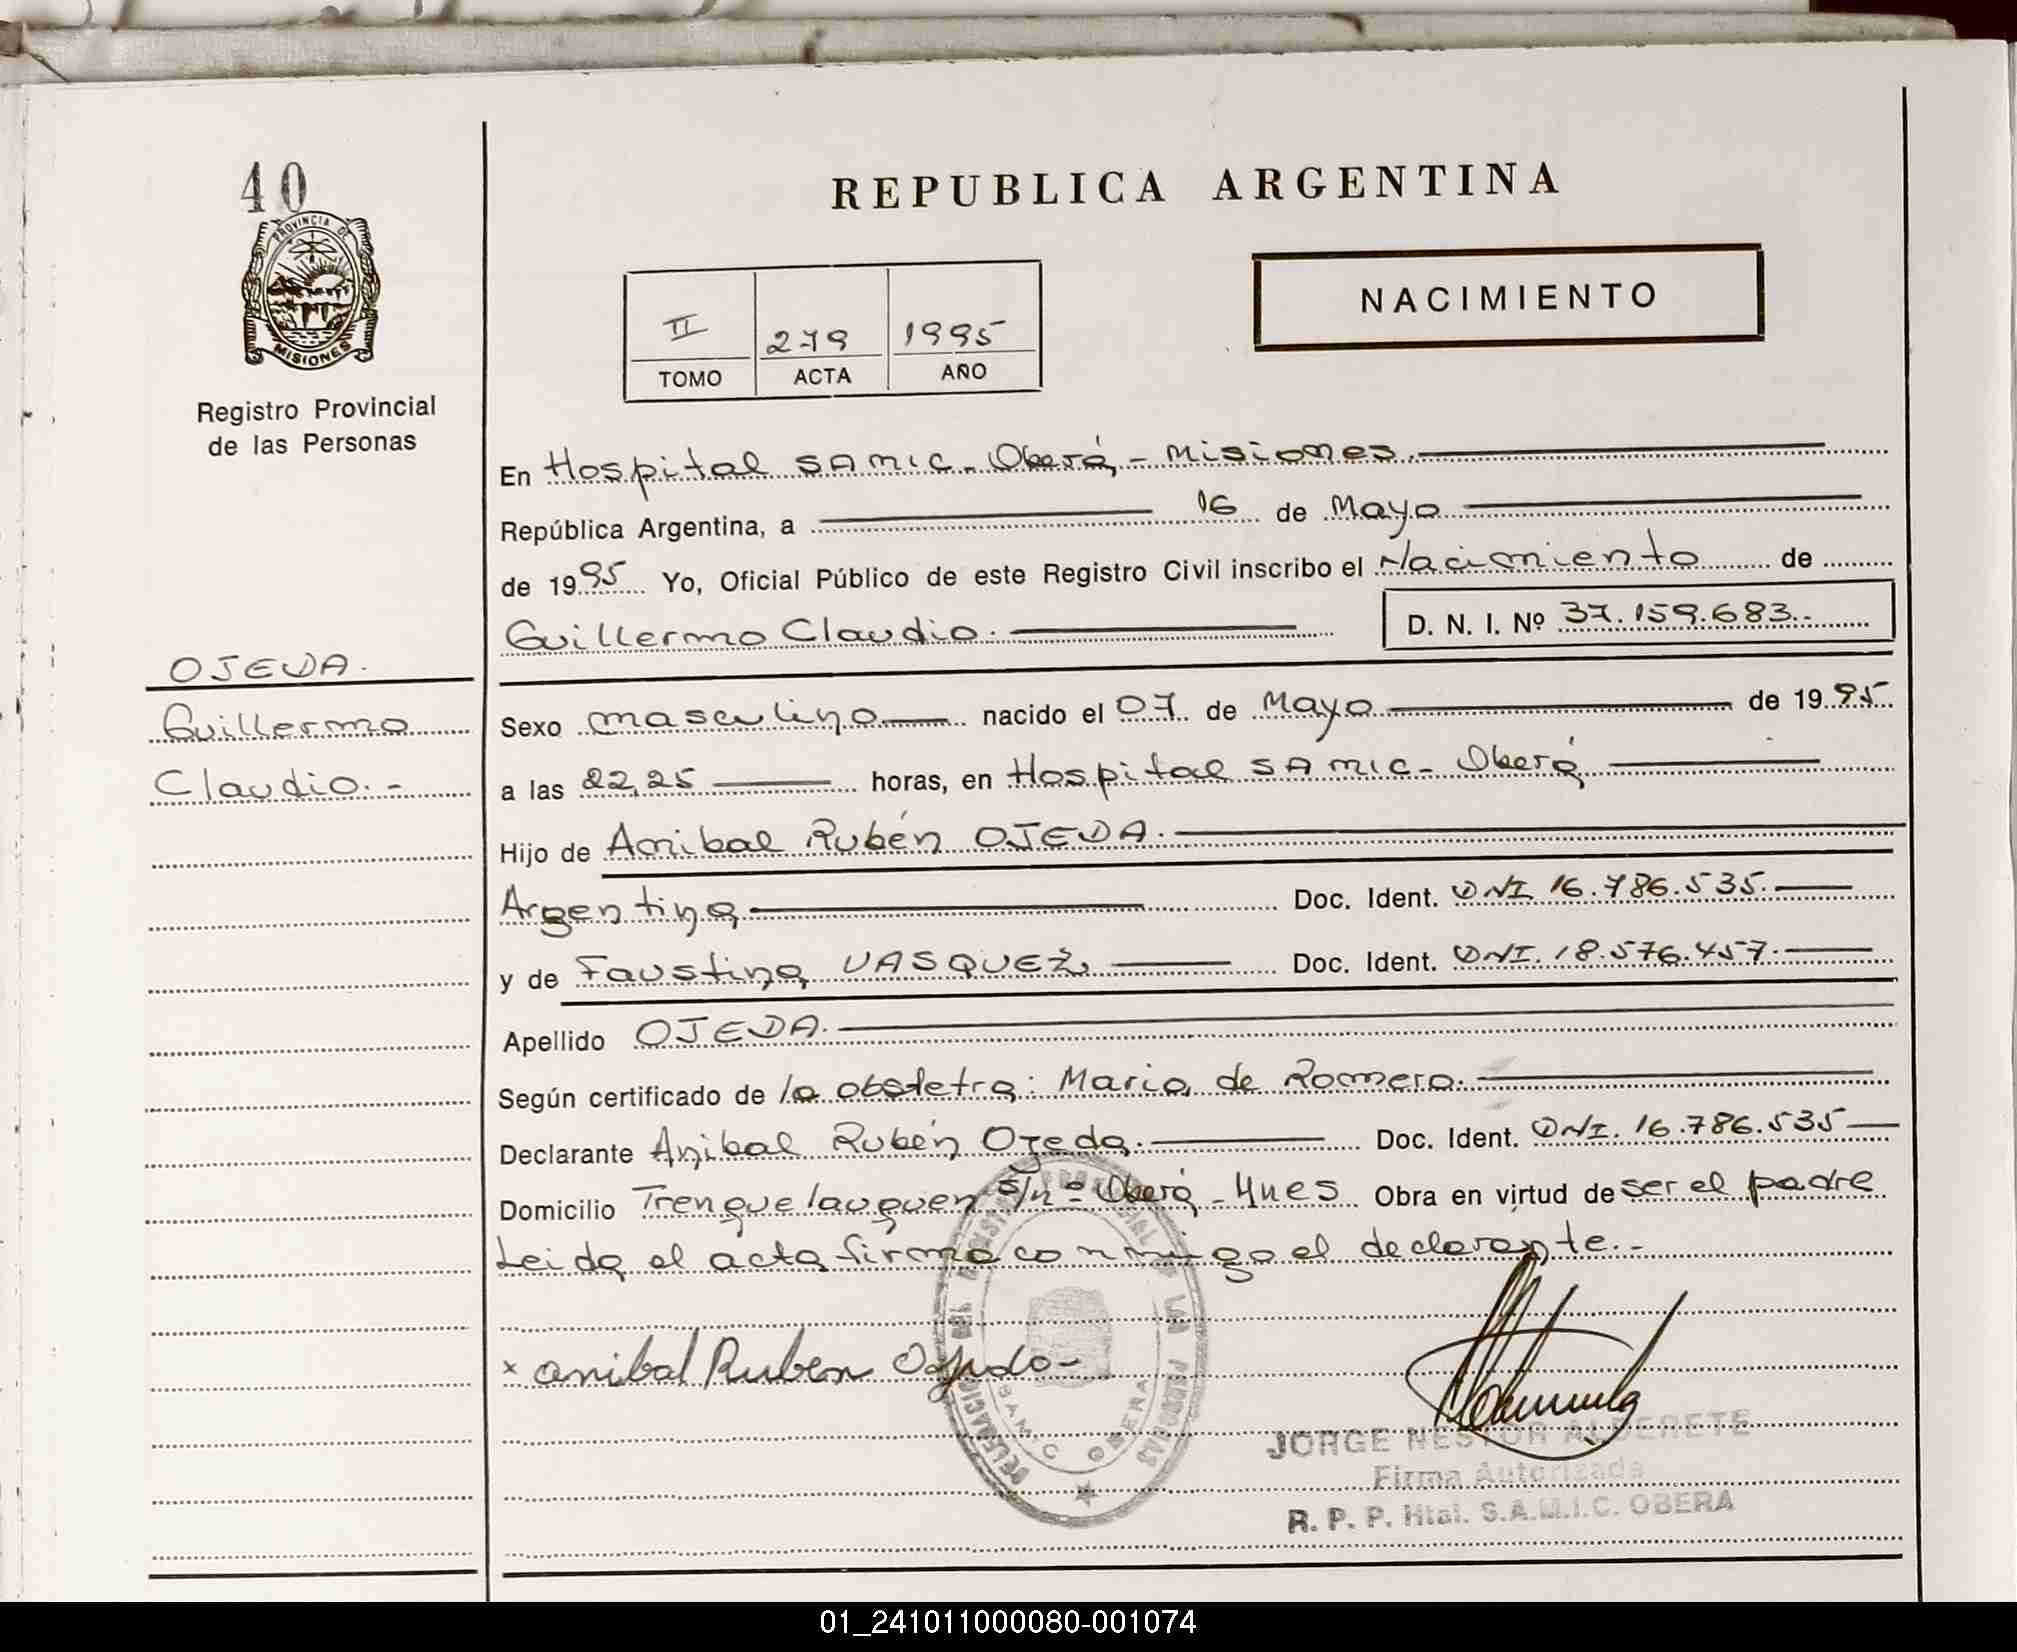 40
PROVINCIA DE
MISIONES
Registro Provincial
de las Personas
REPUBLICA ARGENTINA
NACIMIENTO
II 279 1995
TOMO ACTA AÑO
En Hospital SAMIC - Oberá - Misiones.
República Argentina, a 16 de Mayo
de 1995 Yo, Oficial Público de este Registro Civil inscribo el Nacimiento de
Guillermo Claudio. D. N. I. Nº 37.159.683.-
OJEDA.
Guillermo
Claudio.-
Sexo masculino nacido el 07 de Mayo de 1995
a las 22,25 horas, en Hospital SAMIC - Oberá
Hijo de Anibal Rubén OJEDA.
Argentina Doc. Ident. DNI 16.786.535.
y de Faustina VASQUEZ, Doc. Ident. DNI. 18.576.457.
Apellido OJEDA.
Según certificado de la obstetra: Maria de Romero.
Declarante Anibal Rubén Ojeda. Doc. Ident. DNI. 16.786.535
Domicilio Trenquelauquen s/nº Oberá - Mnes Obra en virtud de ser el padre
Leida el acta firma conmigo el declarante.-
x anibal Ruben Ojeda-
DELEGACION DEL REGISTRO PROVINCIAL DE LAS PERSONAS
SAMIC OBERA
JORGE NESTOR ALDERETE
Firma Autorizada
R. P. P. Htal. S.A.M.I.C. OBERA
01_241011000080-001074